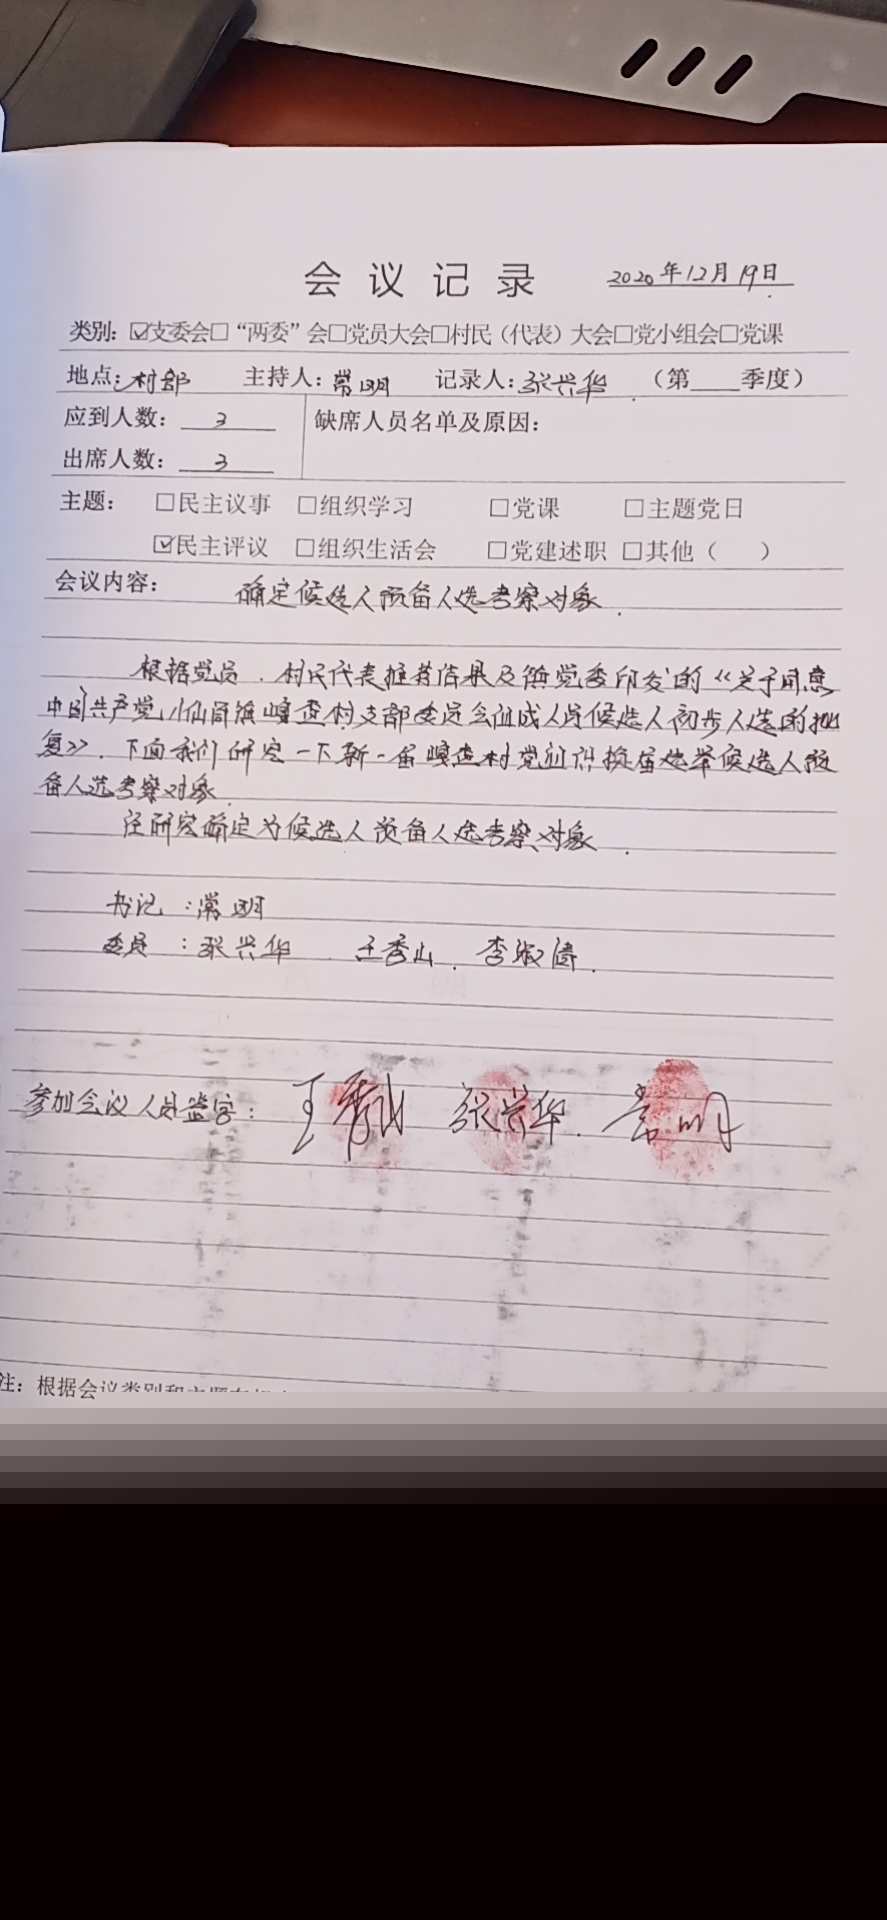 会议记录 2020年12月19日
类别：☑支委会□“两委”会□党员大会□村民（代表）大会□党小组会□党课
地点：村部 主持人：常明 记录人：张兴华 （第 季度）
应到人数：3 缺席人员名单及原因：
出席人数：3
主题： □民主议事 □组织学习 □党课 □主题党日
☑民主评议 □组织生活会 □党建述职 □其他（ ）
会议内容： 确定候选人预备人选考察对象.
根据党员.村民代表推荐结果及镇党委印发的《关于同意
中国共产党 镇 村支部委员会组成人员候选人初步人选的批
复》.下面我们研究一下新一届 村党组织换届选举候选人预
备人选考察对象.
经研究确定为候选人预备人选考察对象.
书记：常明
委员：张兴华 王秀山. 李淑 .
参加会议人员签字： 王秀山 张兴华. 常明
注：根据会议类别和主题在相